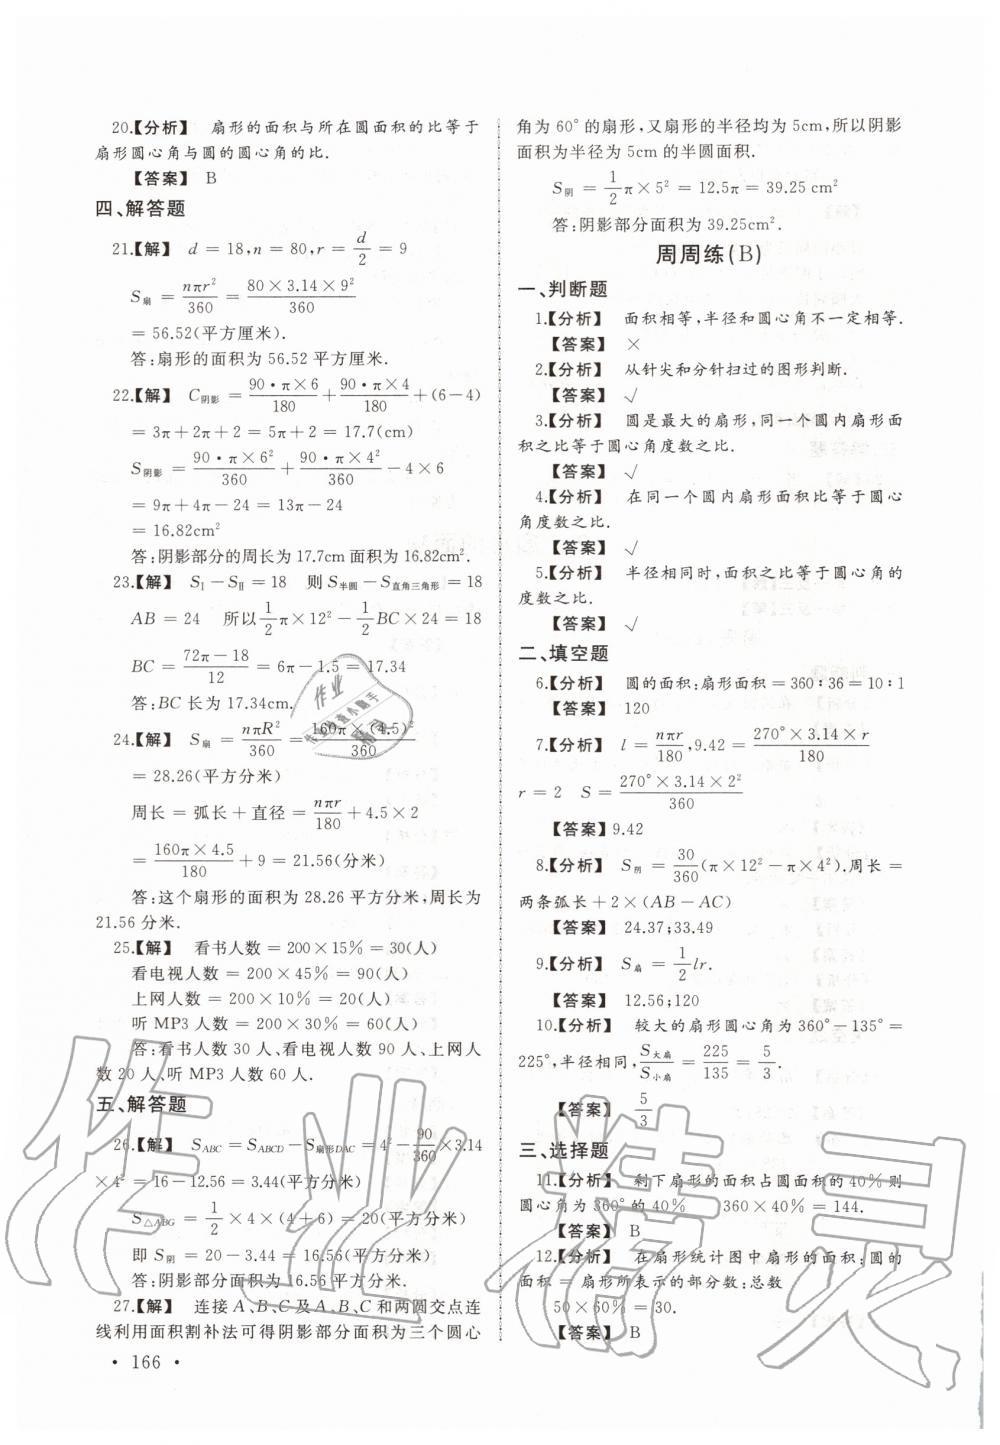 20.【分析】 扇形的面积与所在圆面积的比等于
扇形圆心角与圆的圆心角的比.
【答案】 B
四、解答题
21.【解】 d=18,n=80,r=d/2=9
S扇=nπr²/360=80×3.14×9²/360
=56.52(平方厘米)
答:扇形的面积为 56.52 平方厘米.
22.【解】 C阴影=90·π×6/180+90·π×4/180+(6-4)
=3π+2π+2=5π+2=17.7(cm)
S阴影=90·π×6²/360+90·π×4²/360-4×6
=9π+4π-24=13π-24
=16.82cm²
答:阴影部分的周长为 17.7cm 面积为 16.82cm².
23.【解】 SⅠ-SⅡ=18 则 S半圆-S直角三角形=18
AB=24 所以1/2π×12²-1/2BC×24=18
BC=72π-18/12=6π-1.5=17.34
答:BC 长为 17.34cm.
24.【解】 S扇=nπR²/360=160π×(4.5)²/360
=28.26(平方分米)
周长=弧长+直径=nπr/180+4.5×2
=160π×4.5/180+9=21.56(分米)
答:这个扇形的面积为 28.26 平方分米,周长为
21.56 分米.
25.【解】 看书人数=200×15%=30(人)
看电视人数=200×45%=90(人)
上网人数=200×10%=20(人)
听 MP3 人数=200×30%=60(人)
答:看书人数 30 人、看电视人数 90 人、上网人
数 20 人、听 MP3 人数 60 人.
五、解答题
26.【解】 S_ABC=S_ABCD-S扇形DAC=4²-90/360×3.14
×4²=16-12.56=3.44(平方分米)
S△ABG=1/2×4×(4+6)=20(平方分米)
即 S阴=20-3.44=16.56(平方分米)
答:阴影部分面积为 16.56 平方分米.
27.【解】 连接 A、B、C 及 A、B、C 和两圆交点连
线利用面积割补法可得阴影部分面积为三个圆心
• 166 •
角为 60°的扇形,又扇形的半径均为 5cm,所以阴影
面积为半径为 5cm 的半圆面积.
S阴=1/2π×5²=12.5π=39.25 cm²
答:阴影部分面积为 39.25cm².
周周练(B)
一、判断题
1.【分析】 面积相等,半径和圆心角不一定相等.
【答案】 ×
2.【分析】 从针尖和分针扫过的图形判断.
【答案】 √
3.【分析】 圆是最大的扇形,同一个圆内扇形面
积之比等于圆心角度数之比.
【答案】 √
4.【分析】 在同一个圆内扇形面积比等于圆心
角度数之比.
【答案】 √
5.【分析】 半径相同时,面积之比等于圆心角的
度数之比.
【答案】 √
二、填空题
6.【分析】 圆的面积:扇形面积=360:36=10:1
【答案】 120
7.【分析】 l=nπr/180,9.42=270°×3.14×r/180
r=2 S=270°×3.14×2²/360
【答案】9.42
8.【分析】 S阴=30/360(π×12²-π×4²).周长=
两条弧长+2×(AB-AC)
【答案】 24.37;33.49
9.【分析】 S扇=1/2lr.
【答案】 12.56;120
10.【分析】 较大的扇形圆心角为 360°-135°=
225°,半径相同,S大扇/S小扇=225/135=5/3.
【答案】 5/3
三、选择题
11.【分析】 剩下扇形的面积占圆面积的 40%则
圆心角为 360°的 40% 360×40%=144.
【答案】 B
12.【分析】 在扇形统计图中扇形的面积:圆的
面积=扇形所表示的部分数:总数
50×60%=30.
【答案】 B
作业精灵